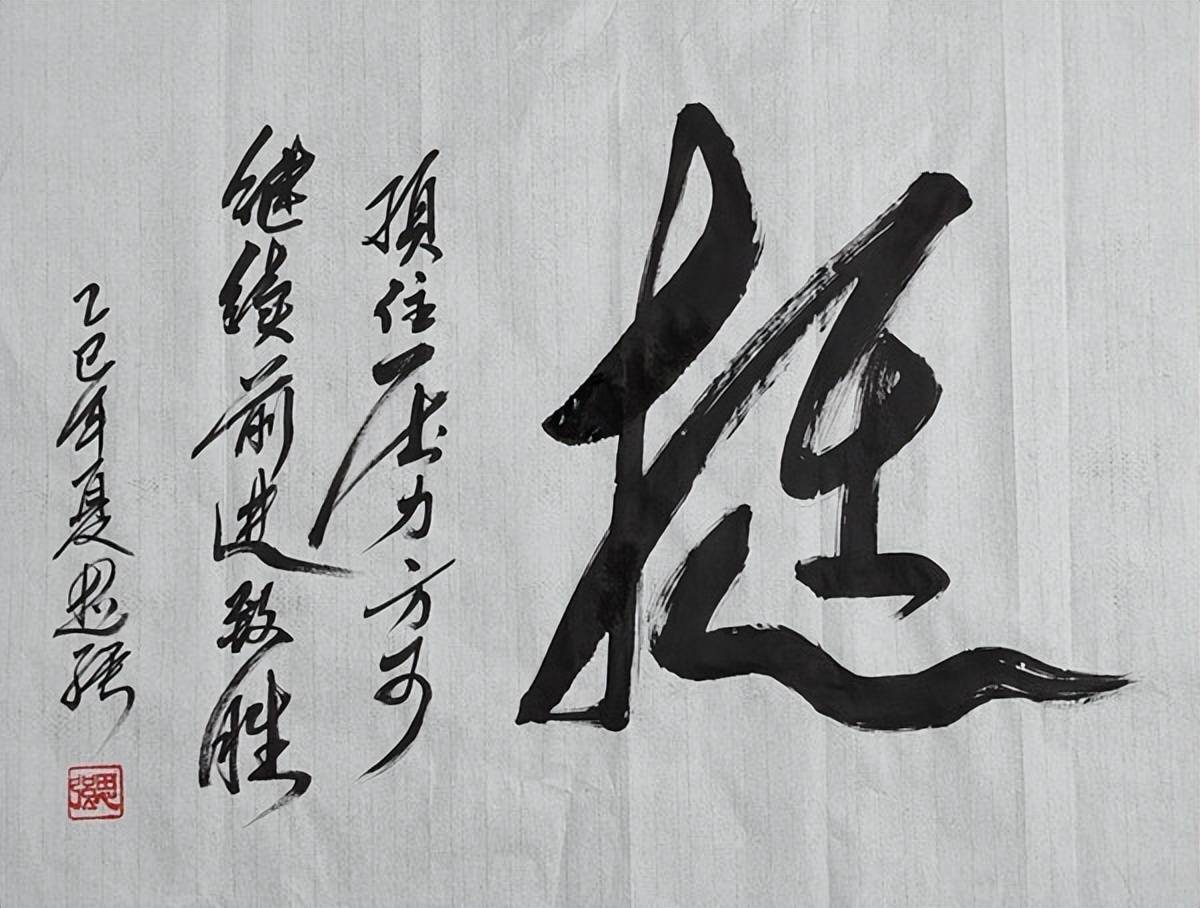 挺
顶住压力方可
继续前进致胜
乙巳年夏思强
思强